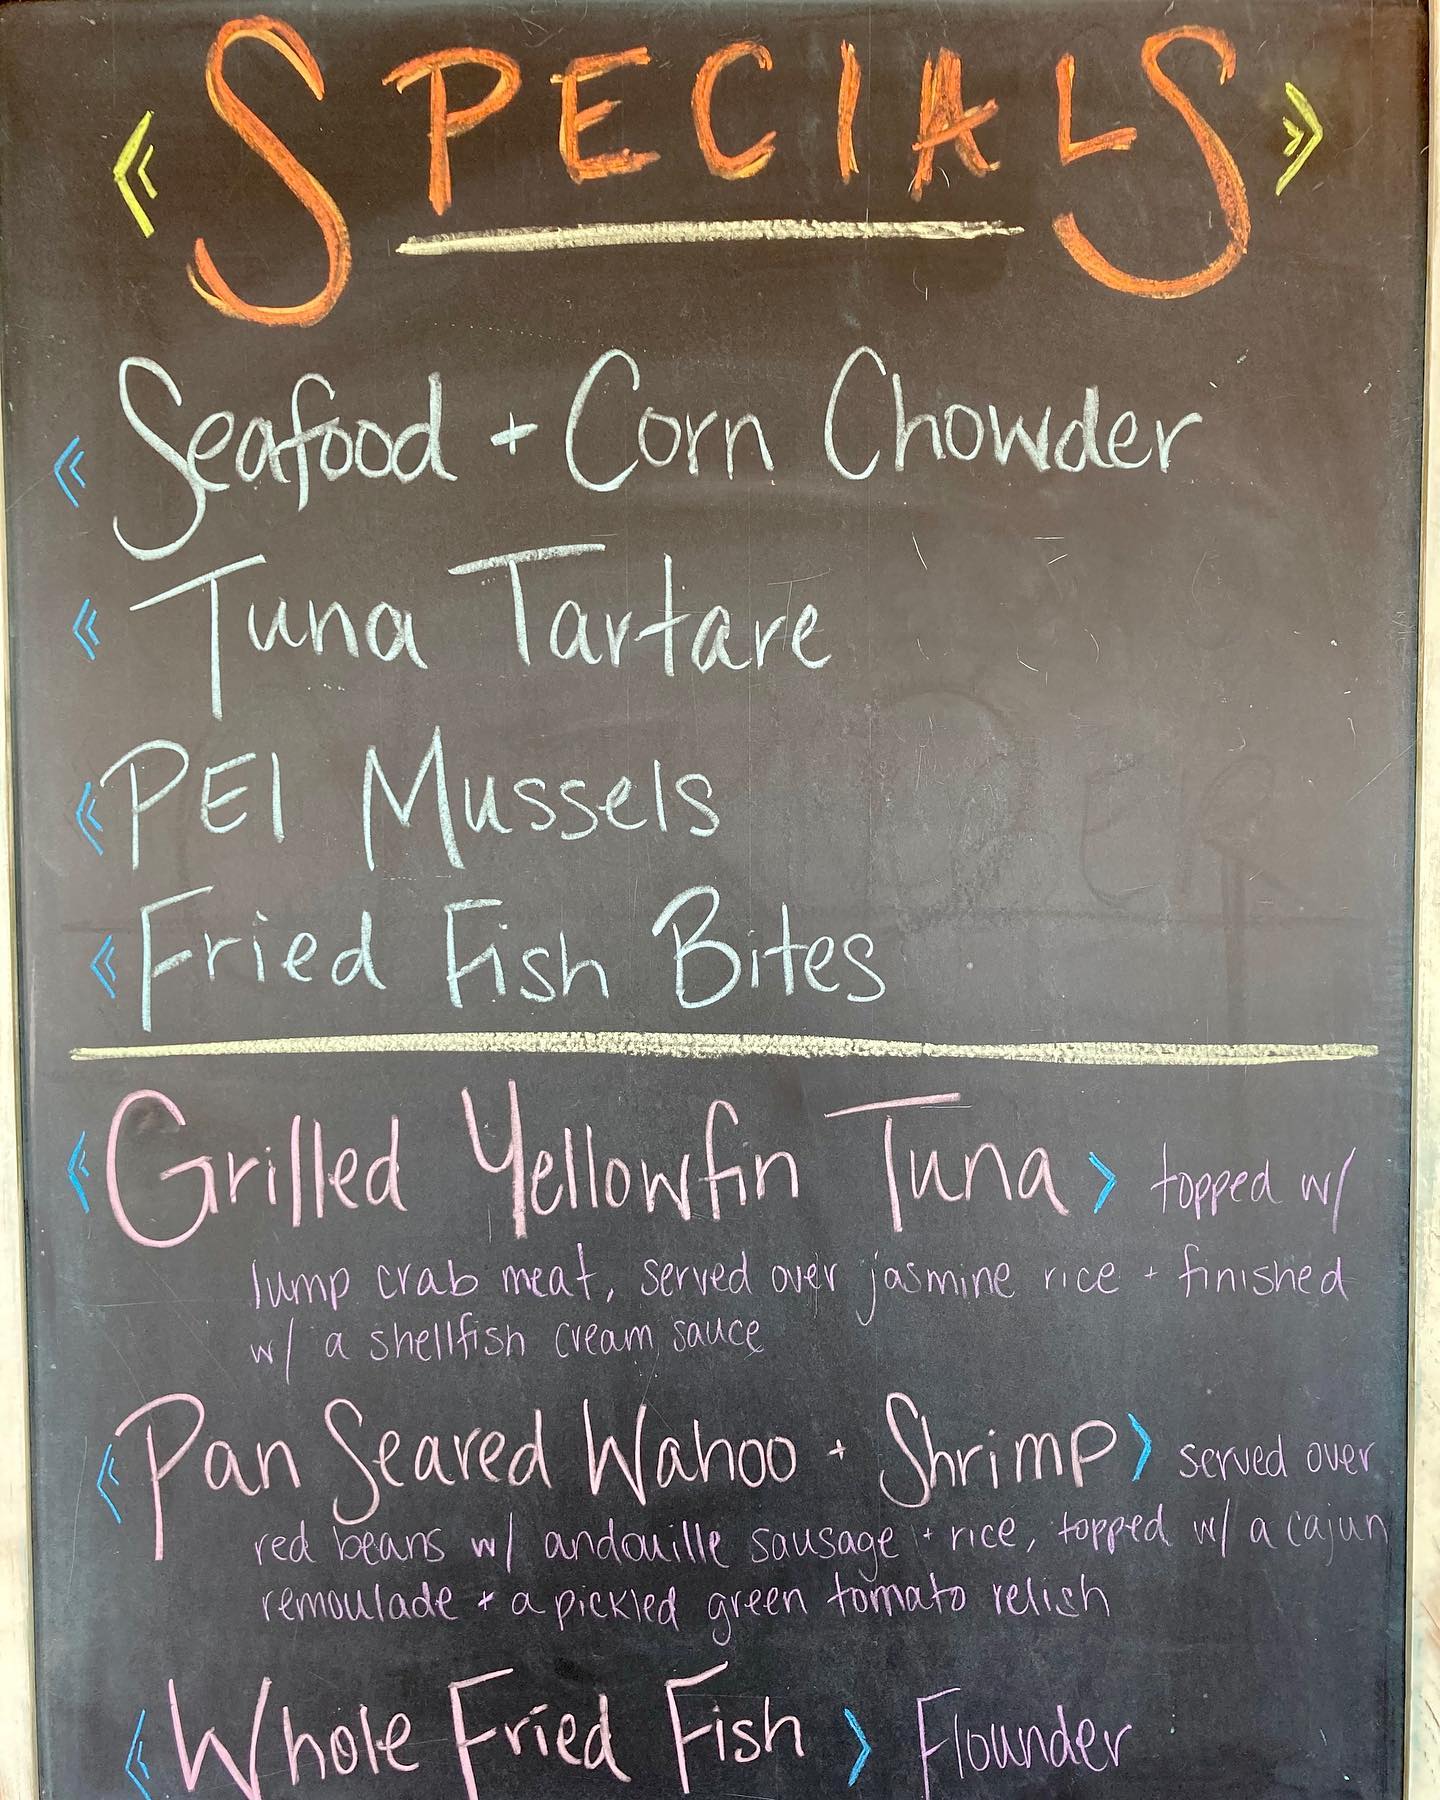 SPECIALS
Seafood + Corn Chowder
Tuna Tartare
PEI Mussels
Fried Fish Bites
Grilled Yellowfin Tuna > topped w/
lump crab meat, served over jasmine rice + finished
w/ a shellfish cream sauce
Pan Seared Wahoo + Shrimp > served over
red beans w/ andouille sausage + rice, topped w/ a cajun
remoulade + a pickled green tomato relish
Whole Fried Fish > Flounder